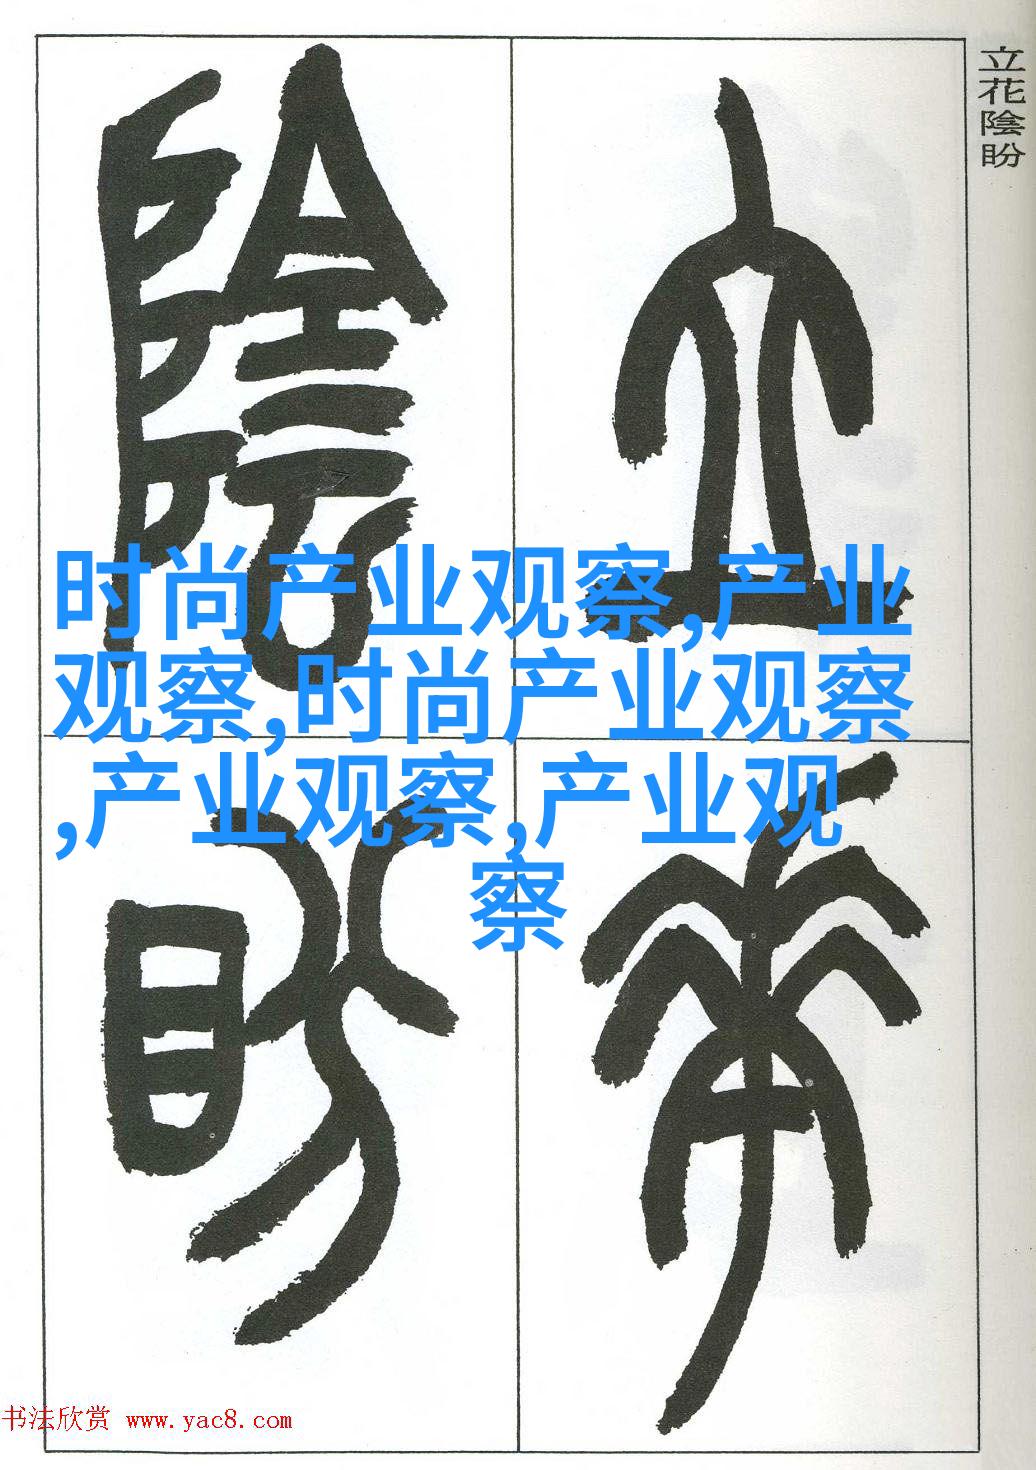 立花陰盼
立
花
陰
盼
时尚产业观察,产业
观察,时尚产业观察
,产业观察,产业观
察
书法欣赏 www.yac8.com